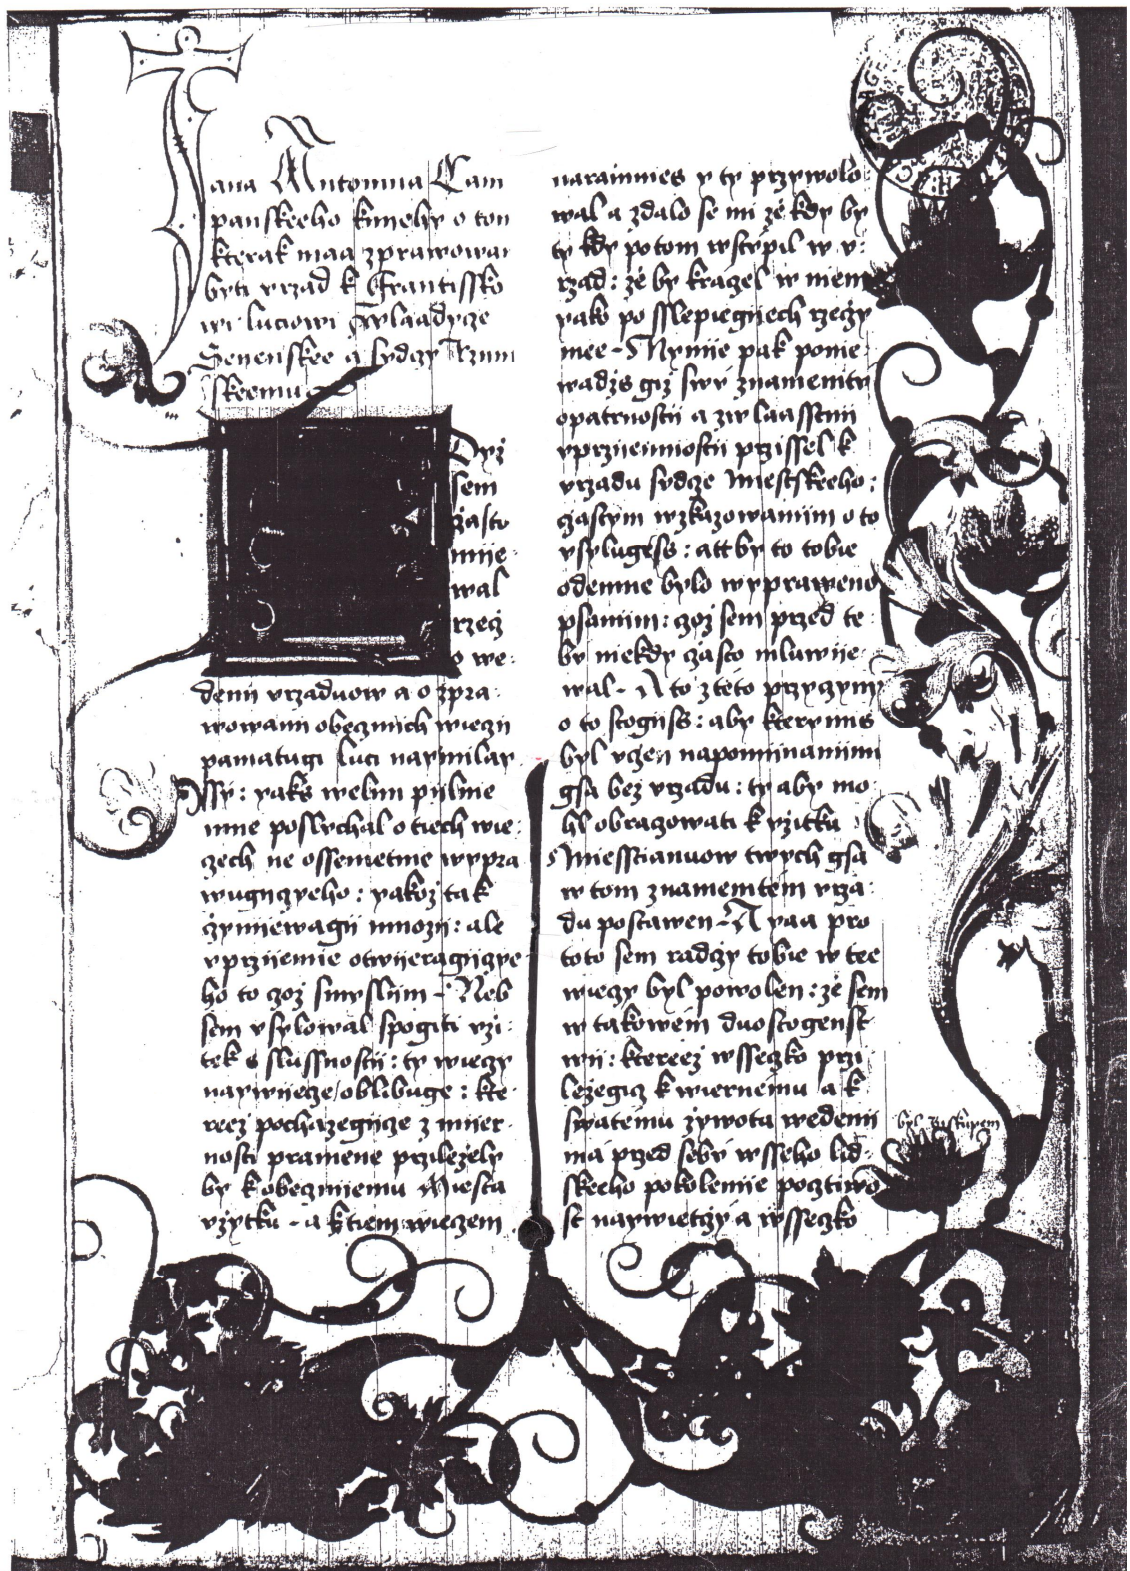 Jana Antonina Cam
panskeeho kniehy o tom
kterak maa zprawowan
byti vrzad k Frantissko
wi luciowi Wlaadycze
Senenskee a sudczy Rzim
skeemu
Dyz
sem
czasto
mnie
wal
rzecz
o we:
denii vrzaduow a o zpra
wowani obecznich wieczii
pamatugi luci naymilay
ssy: yaks welmi pijlnie
mne posluchal o tiech wie
czech ne ossemetnie wypra
wugiczyeho: yakoz tak
czyniewagij mnozij: ale
vprzijemnie otwijeragijcze
ho to czoz smyslijm - Neb
sem vsylowal spogiti vzi:
tek s slussnostij: ty wieczy
naywijecze oblibuge: kte
reez pochazegicze z mijer
nosti pramene przilezely
by k obeczniemu Miesta
vzytku - a k tiem wieczem
naraimies y ty przywolo:
wal a zdalo se mi ze kdy by
ty kdy potom wstupil w v:
rzad: ze by kragel w mem
yako po sslepiegiech rzeczy
mee - Nynie pak ponie
wadzs giz swu znamenitu
opatrnostii a zwlaasstnii
vprzijemnostii przissel k
vrzadu sudcze Miestskeeho:
czastym wzkazowaniim o to
vsylugess: att by to tobie
odemne bylo wyprawena
psaniim: czoz sem przed te:
bu niekdy czasto mluwije:
wal - A to z teto przyczyny
o to stogiiss: aby kterymis
byl vczen napominaniim
gsa bez vrzadu: ty aby mo
hl obraczowati k vzitku
Miesstianuow twych gsa
w tom znamenitem vrza:
du postawen - A yaa pro
toto sem radczy tobie w tee
wieczy byl powolen: ze sem
w takowem duostogenst
wii: ktereez wsseczko przi:
lezegicz k wiernemu a k
swatemu zywota wedenii
ma przed sebu wsseho lid:
skeeho pokolenije pocztiwo
st naywietczy a wsseczko
byl Biskupem